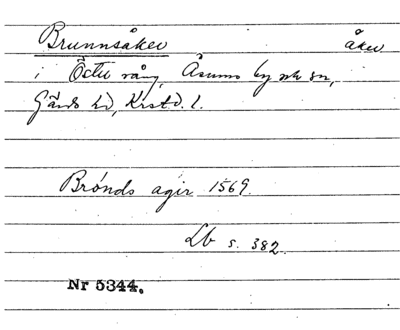 Brunnsåker åker
i Öster vång, Åsums by och sn,
Gärds hd, Krstd. l.
Brónds agir 1569.
Lb s. 382
Nr 5344.